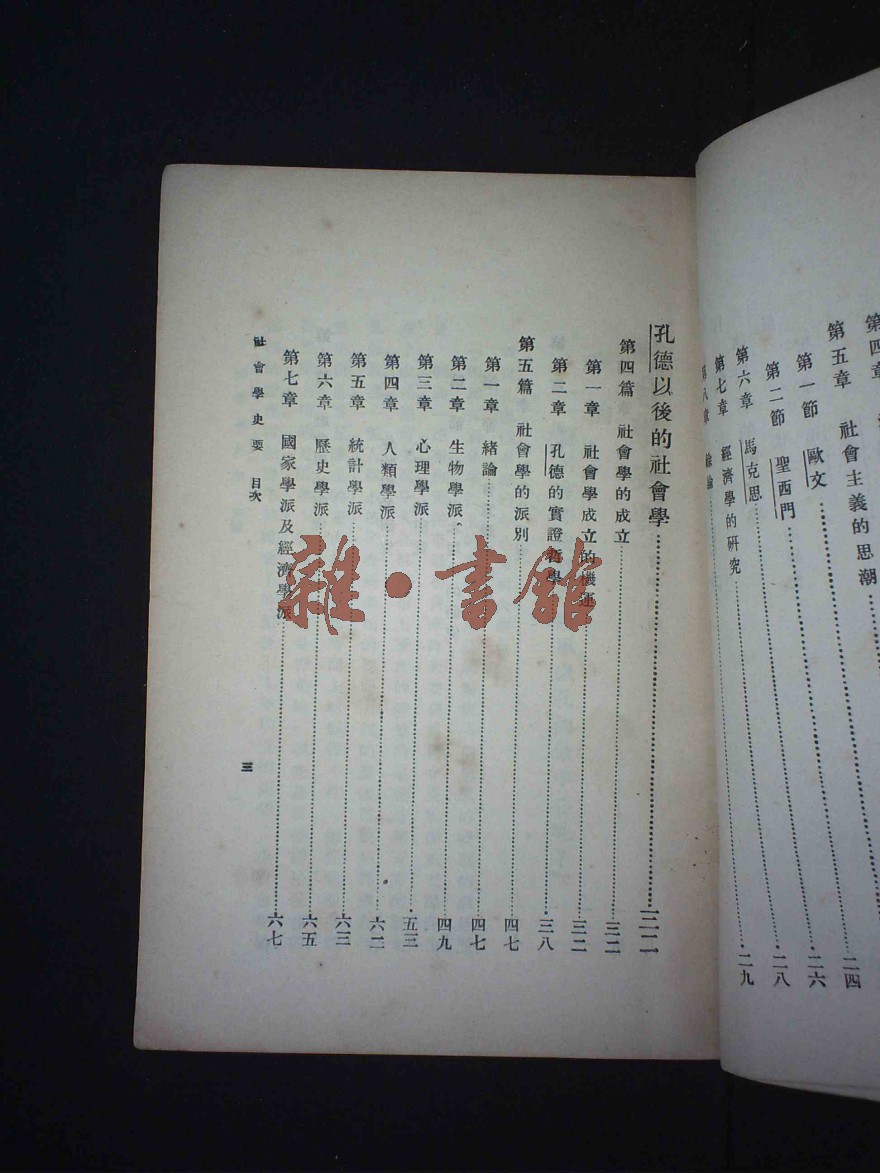 第四章
第五章 社會主義的思潮 二四
第一節 歐文 二六
第二節 聖西門 二八
第六章 馬克思 二九
第七章 經濟學的研究
第八章
孔德以後的社會學 三二
第四篇 社會學的成立 三二
第一章 社會學成立的機運 三二
第二章 孔德的實證哲學 三八
第五篇 社會學的派別 四七
第一章 緒論 四七
第二章 生物學派 四九
第三章 心理學派 五三
第四章 人類學派 六二
第五章 統計學派 六三
第六章 歷史學派 六五
第七章 國家學派及經濟學派 六七
社會學史要 目次
三
雜·書館